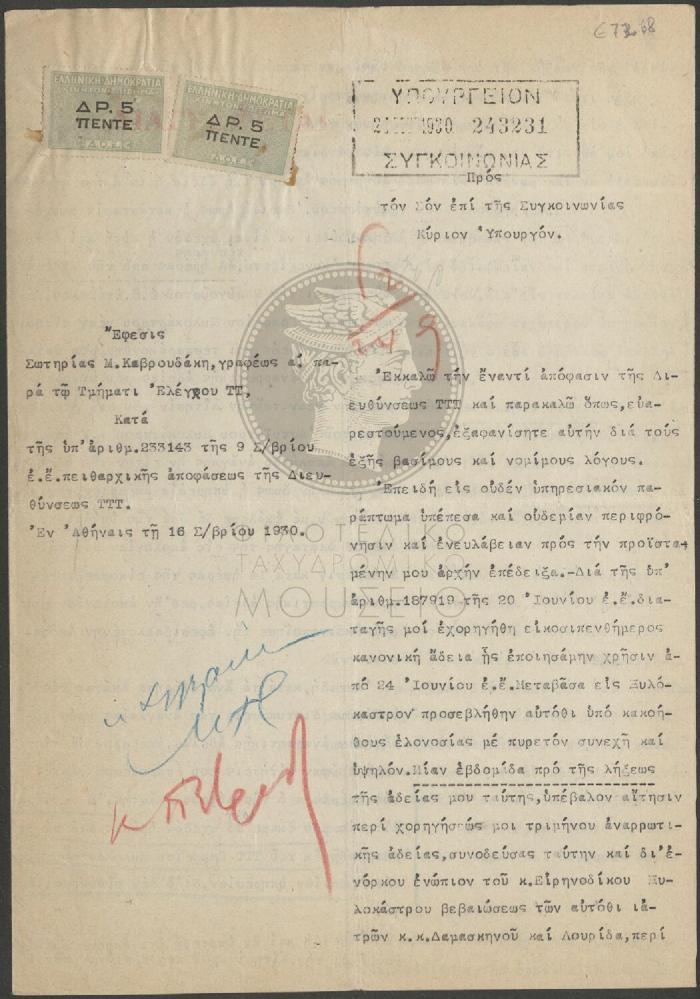 ΕΛΛΗΝΙΚΗ·ΔΗΜΟΚΡΑΤΙΑ
ΚΙΝΗΤΟΝ·ΕΠΙΣΗΜΑ
ΔΡ. 5
ΠΕΝΤΕ
ΕΛΛΗΝΙΚΗ·ΔΗΜΟΚΡΑΤΙΑ
ΚΙΝΗΤΟΝ·ΕΠΙΣΗΜΑ
ΔΡ. 5
ΠΕΝΤΕ
ΥΠΟΥΡΓΕΙΟΝ
1930 243231
ΣΥΓΚΟΙΝΩΝΙΑΣ
Πρός
τόν Σόν ἐπί τῆς Συγκοινωνίας
Κύριον Ὑπουργόν.
Ἔφεσις
Σωτηρίας Μ.Καβρουδάκη,γραφέως αʹ πα-
ρά τῷ Τμήματι Ἐλέγχου ΤΤ,
Κατά
τῆς ὑπ'ἀριθμ.233143 τῆς 9 Σ/βρίου
ἐ.ἔ.πειθαρχικῆς ἀποφάσεως τῆς Διευ-
θύνσεως ΤΤΤ.
Ἐν Ἀθήναις τῇ 16 Σ/βρίου 1930.
Ἐκκαλῶ τήν ἔναντί ἀπόφασιν τῆς Δι-
ευθύνσεως ΤΤΤ καί παρακαλῶ ὅπως,εὐα-
ρεστούμενος,ἐξαφανίσητε αὐτήν διά τούς
ἑξῆς βασίμους καί νομίμους λόγους.
Ἐπειδή εἰς οὐδέν ὑπηρεσιακόν πα-
ράπτωμα ὑπέπεσα καί οὐδεμίαν περιφρό-
νησιν καί ἐνευλάβειαν πρός τήν προϊστα-
μένην μου ἀρχήν ἐπέδειξα.-Διά τῆς ὑπ'
ἀριθμ.187919 τῆς 20 Ἰουνίου ἐ.ἔ.δια-
ταγῆς μοί ἐχορηγήθη εἰκοσιπενθήμερος
κανονική ἄδεια ἧς ἐποιησάμην χρῆσιν ἀ-
πό 24 Ἰουνίου ἐ.ἔ.Μεταβᾶσα εἰς Ξυλό-
καστρον προσεβλήθην αὐτόθι ὑπό κακοή-
θους ἑλονοσίας μέ πυρετόν συνεχῆ καί
ὑψηλόν.Μίαν ἑβδομίδα πρό τῆς λήξεως
τῆς ἀδείας μου ταύτης,ὑπέβαλον αἴτησιν
περί χορηγήσεώς μοι τριμήνου ἀναρρωτι-
κῆς ἀδείας,συνοδεύσας ταύτην καί δι'ἐ-
νόρκου ἐνώπιον τοῦ κ.Εἰρηνοδίκου Ξυ-
λοκάστρου βεβαιώσεως τῶν αὐτόθι ἰα-
τρῶν κ.κ.Δαμασκηνοῦ καί Λουρίδα,περί
ΦΙΛΟΤΕΛΙΚΟ
ΤΑΧΥΔΡΟΜΙΚΟ
ΜΟΥΣΕΙΟ